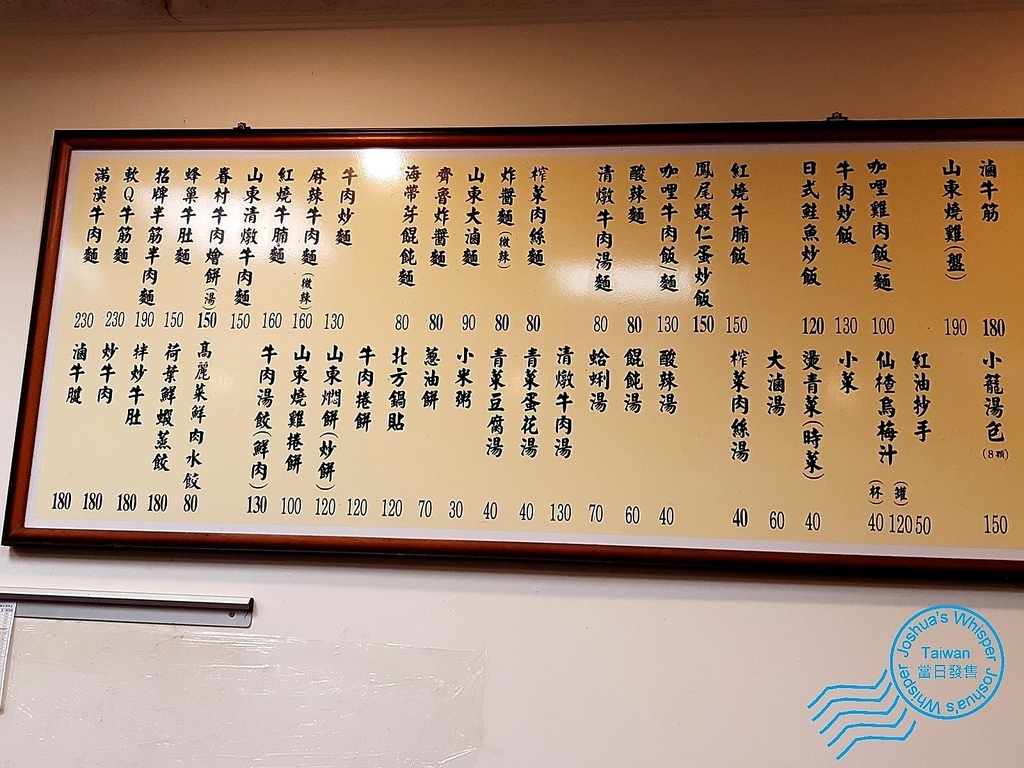 滿漢牛肉麵 230
軟Q牛筋麵 230
招牌半筋半肉麵 190
蜂巢牛肚麵 150
眷村牛肉燴餅(湯) 150
山東清燉牛肉麵 150
紅燒牛腩麵 160
麻辣牛肉麵(微辣) 160
牛肉炒麵 130
海帶芽餛飩麵 80
齊魯炸醬麵 80
山東大滷麵 90
炸醬麵(微辣) 80
榨菜肉絲麵 80
清燉牛肉湯麵 80
酸辣麵 80
咖哩牛肉飯/麵 130
鳳尾蝦仁蛋炒飯 150
紅燒牛腩飯 150
日式鮭魚炒飯 120
牛肉炒飯 130
咖哩雞肉飯/麵 100
山東燒雞(盤) 190
滷牛筋 180
滷牛腱 180
炒牛肉 180
拌炒牛肚 180
荷葉鮮蝦蒸餃 180
高麗菜鮮肉水餃 80
牛肉湯餃(鮮肉) 130
山東燒雞捲餅 100
山東燜餅(炒餅) 120
牛肉捲餅 120
北方鍋貼 120
蔥油餅 70
小米粥 30
青菜豆腐湯 40
青菜蛋花湯 40
清燉牛肉湯 130
蛤蜊湯 70
餛飩湯 60
酸辣湯 40
榨菜肉絲湯 40
大滷湯 60
燙青菜(時菜) 40
小菜
仙楂烏梅汁 (杯) 40 (罐) 120
紅油抄手 50
小籠湯包(8顆) 150
Joshua's Whisper
Taiwan
當日發售
Joshua's Whisper